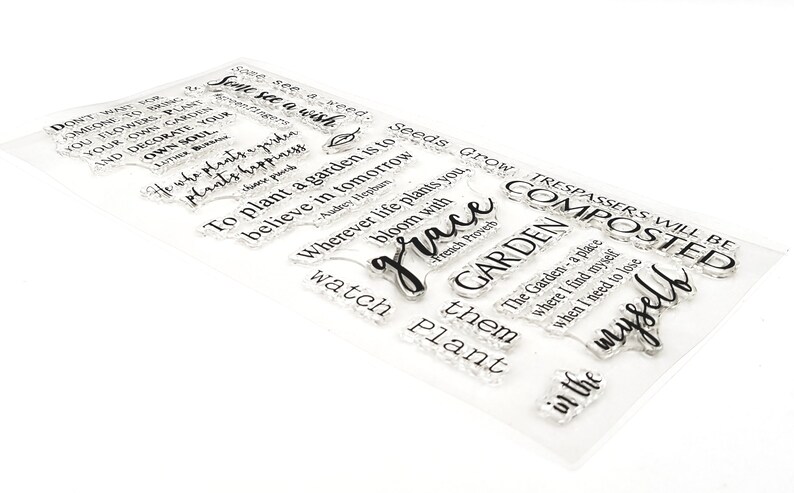 Some see a weed,
&
Some see a wish.
#greenfingers
DON'T WAIT FOR
SOMEONE TO BRING
YOU FLOWERS. PLANT
YOUR OWN GARDEN
AND DECORATE YOUR
OWN SOUL.
LUTHER BURBANK
He who plants a garden
plants happiness
chinese proverb
To plant a garden is to
believe in tomorrow
-Audrey Hepburn
Seeds
Grow
Wherever life plants you,
bloom with
grace
-French Proverb
TRESPASSERS WILL BE
COMPOSTED
GARDEN
The Garden- a place
where i find myself
when I need to lose
myself
watch
them
Plant
in the